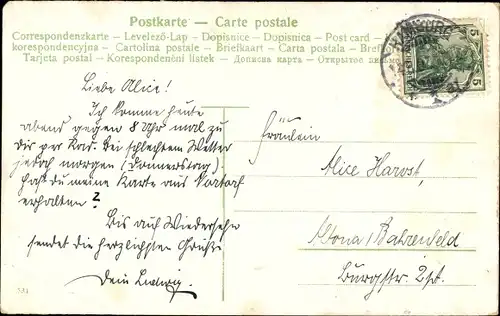 Postkarte — Carte postale
Correspondenzkarte — Levelező-Lap — Dopisnice — Dopisnica — Post card —
korespondencyjna — Cartolina postale — Briefkaart — Carta postala — Bref
Tarjeta postal — Korespondenční lístek — Дописна карта — Открытое письмо
5
5
Liebe Alice!
Ich komme heute
abend gegen 8 Uhr mal zu
Dir per Rad. Bei schlechtem Wetter
jedoch morgen (Donnerstag)
Hast Du meine Karte aus Nortorf
erhalten?
Bis auf Wiedersehn
sendet die herzlichsten Grüße
Dein Ludwig.
Fräulein
Alice Harvst,
Altona/Bahrenfeld
Burgstr. 2 pt.